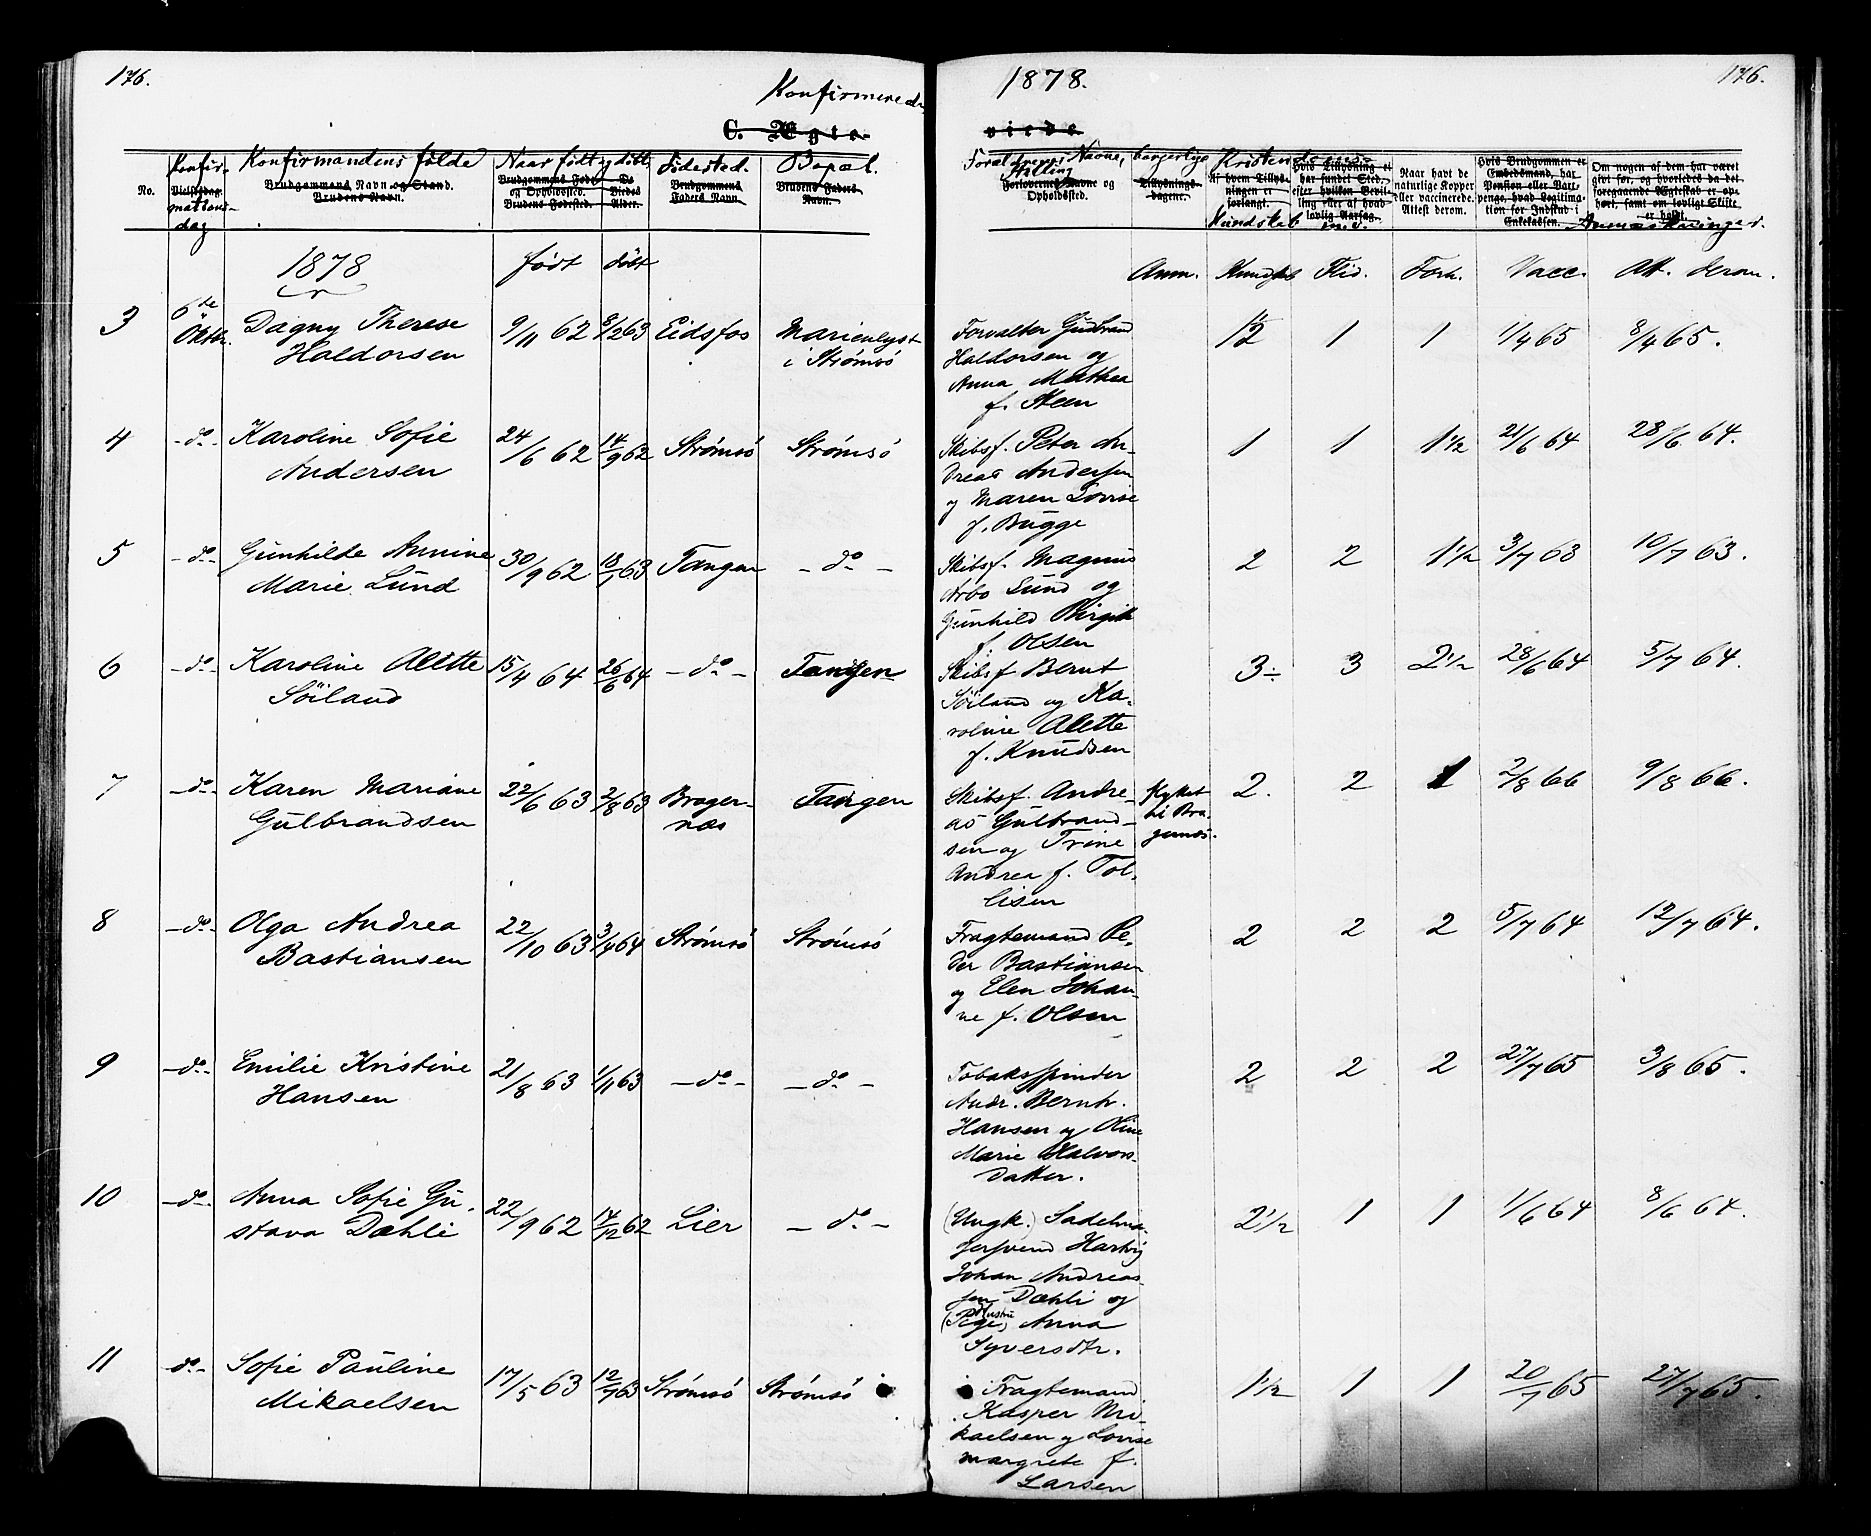 176.
Konfirmerede
1878.
176.
C. Ægte-
viede
No.
Konfir-
Vielsesdag.
mations-
dag
Konfirmandens fulde
Brudgommens Navn og Stand.
Brudens Navn.
Naar født og døbt,
Brudgommens Føde-
og Opholdssted.
Brudens Fødested.
De
Viedes
Alder.
Fødested.
Brudgommens
Faders Navn.
Bopæl.
Brudens Faders
Navn.
Forældrenes Navne, borgerlige
Stilling
Forlovernes Navne og
Opholdssted.
Tillysnings-
dagene.
Kristendoms-
Af hvem Tillys-
ningen er
forlangt.
Kundskab m. v.
Hvis Tillysning ei
har fundet Sted,
efter hvilken Bevil-
ling eller af hvad
lovlig Aarsag.
Naar havt de
naturlige Kopper
eller vaccinerede.
Attest derom.
Hvis Brudgommen er
Embedsmand, har
Pension eller Vart-
penge, hvad Legitima-
tion for Indskud i
Enkekassen.
Om nogen af dem har været
gift før, og hvorledes da det
foregaaende Ægteskab er op-
hørt, samt om lovligt Skifte
er holdt.
Anmærkninger.
1878 født døbt Anm. Kundsk Flid. Forh. Vacc. Att. derom.
3 6de Oktbr. Dagny Therese 9/11 62 8/2 63 Eidsfos Marienlyst Forvalter Gudbrand 1½ 1 1 1/4 65 8/4 65.
Haldorsen i Strømsø Haldorsen og
Anna Mathea
f. Steen
4 -do- Karoline Sofie 24/6 62 14/9 62 Strømsø Strømsø Skibsf. Peter An- 1 1 1½ 21/6 64 28/6 64.
Andersen dreas Andersen
og Maren Lovise
f. Bugge
5 -do- Gunhilde Annine 30/9 62 18/1 63 Tangen -do- Skibsf. Magnus 2 2 1½ 3/7 63 10/7 63.
Marie Lund Arbo Lund og
Gunhild Birgit
f. Olsen
6 -do- Karoline Alette 15/4 64 26/6 64 -do- Tangen Skibsf Bernt 3÷ 3 2½ 28/6 64 5/7 64.
Söiland Söiland og Ka-
roline Alette
f. Knudsen
7 -do- Karen Mariane 22/6 63 2/8 63 Brager- Tangen Skibsf. Andre- Flyttet 2. 2 1 2/8 66 9/8 66.
Gulbrandsen næs as Gulbrand- til Bra-
sen og Trine gernæs.
Andrea f. Tol-
lisen
8 -do- Olga Andrea 22/10 63 3/4 64 Strømsø Strømsø Fragtemand Pe- 2 2 2 5/7 64 12/7 64.
Bastiansen der Bastiansen
og Elen Johan-
ne f. Olsen
9 -do- Emilie Kristine 21/8 63 1/11 63 -do- -do- Tobaksspinder 2 2 2 27/7 65 3/8 65.
Hansen Andr. Bernh.
Hansen og Oline
Marie Halvors-
datter.
10 -do- Anna Sofie Gu- 22/9 62 14/12 62 Lier -do- (Ungk.) Sadelma- 2½ 1 1 1/6 64 8/6 64.
stava Dæhli gersvend Hartvig
Johan Andreas-
sen Dæhli og
(Pige) Anna
Syversdtr.
11 do- Sofie Pauline 17/5 63 12/7 63 Strømsø Strømsø Fragtemand 1½ 1 1 20/7 65 27/7 65.
Mikaelsen Kasper Mi-
kaelsen og Lovise
Margrete f.
Larsen